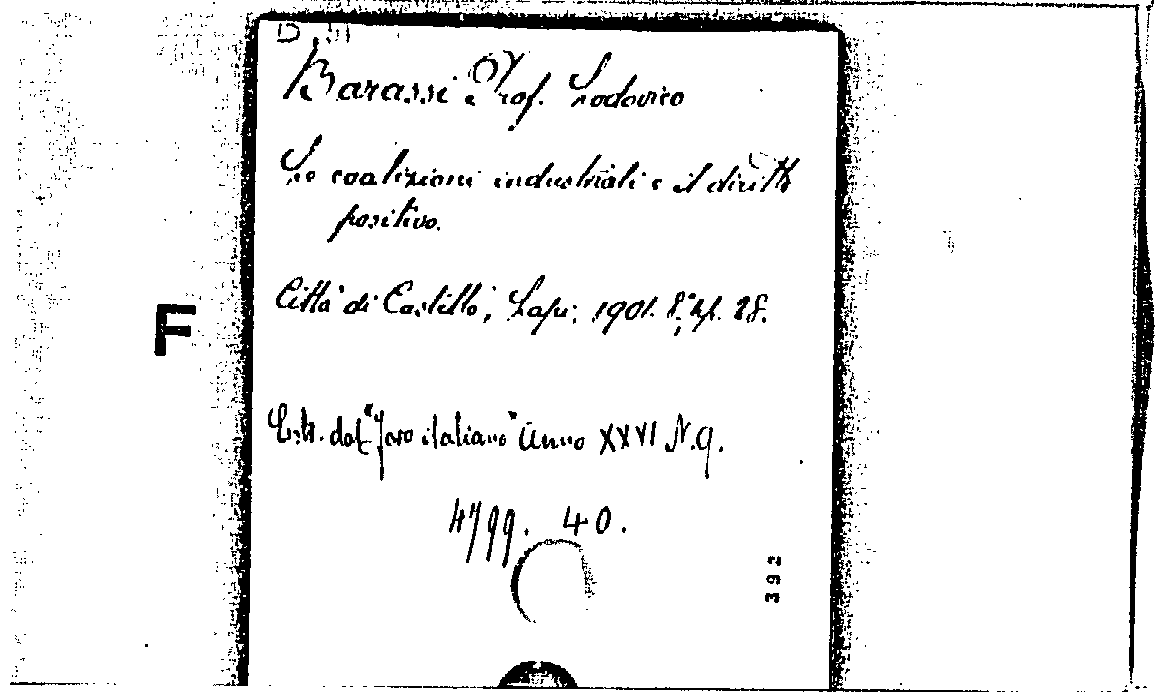 Barassi Prof. Lodovico
Le coalizioni industriali e il diritto
positivo.
Città di Castello, Lapi, 1901. 8°, pp. 28.
F
Estr. dal "Foro italiano" Anno XXVI N. 9.
4799. 40.
392